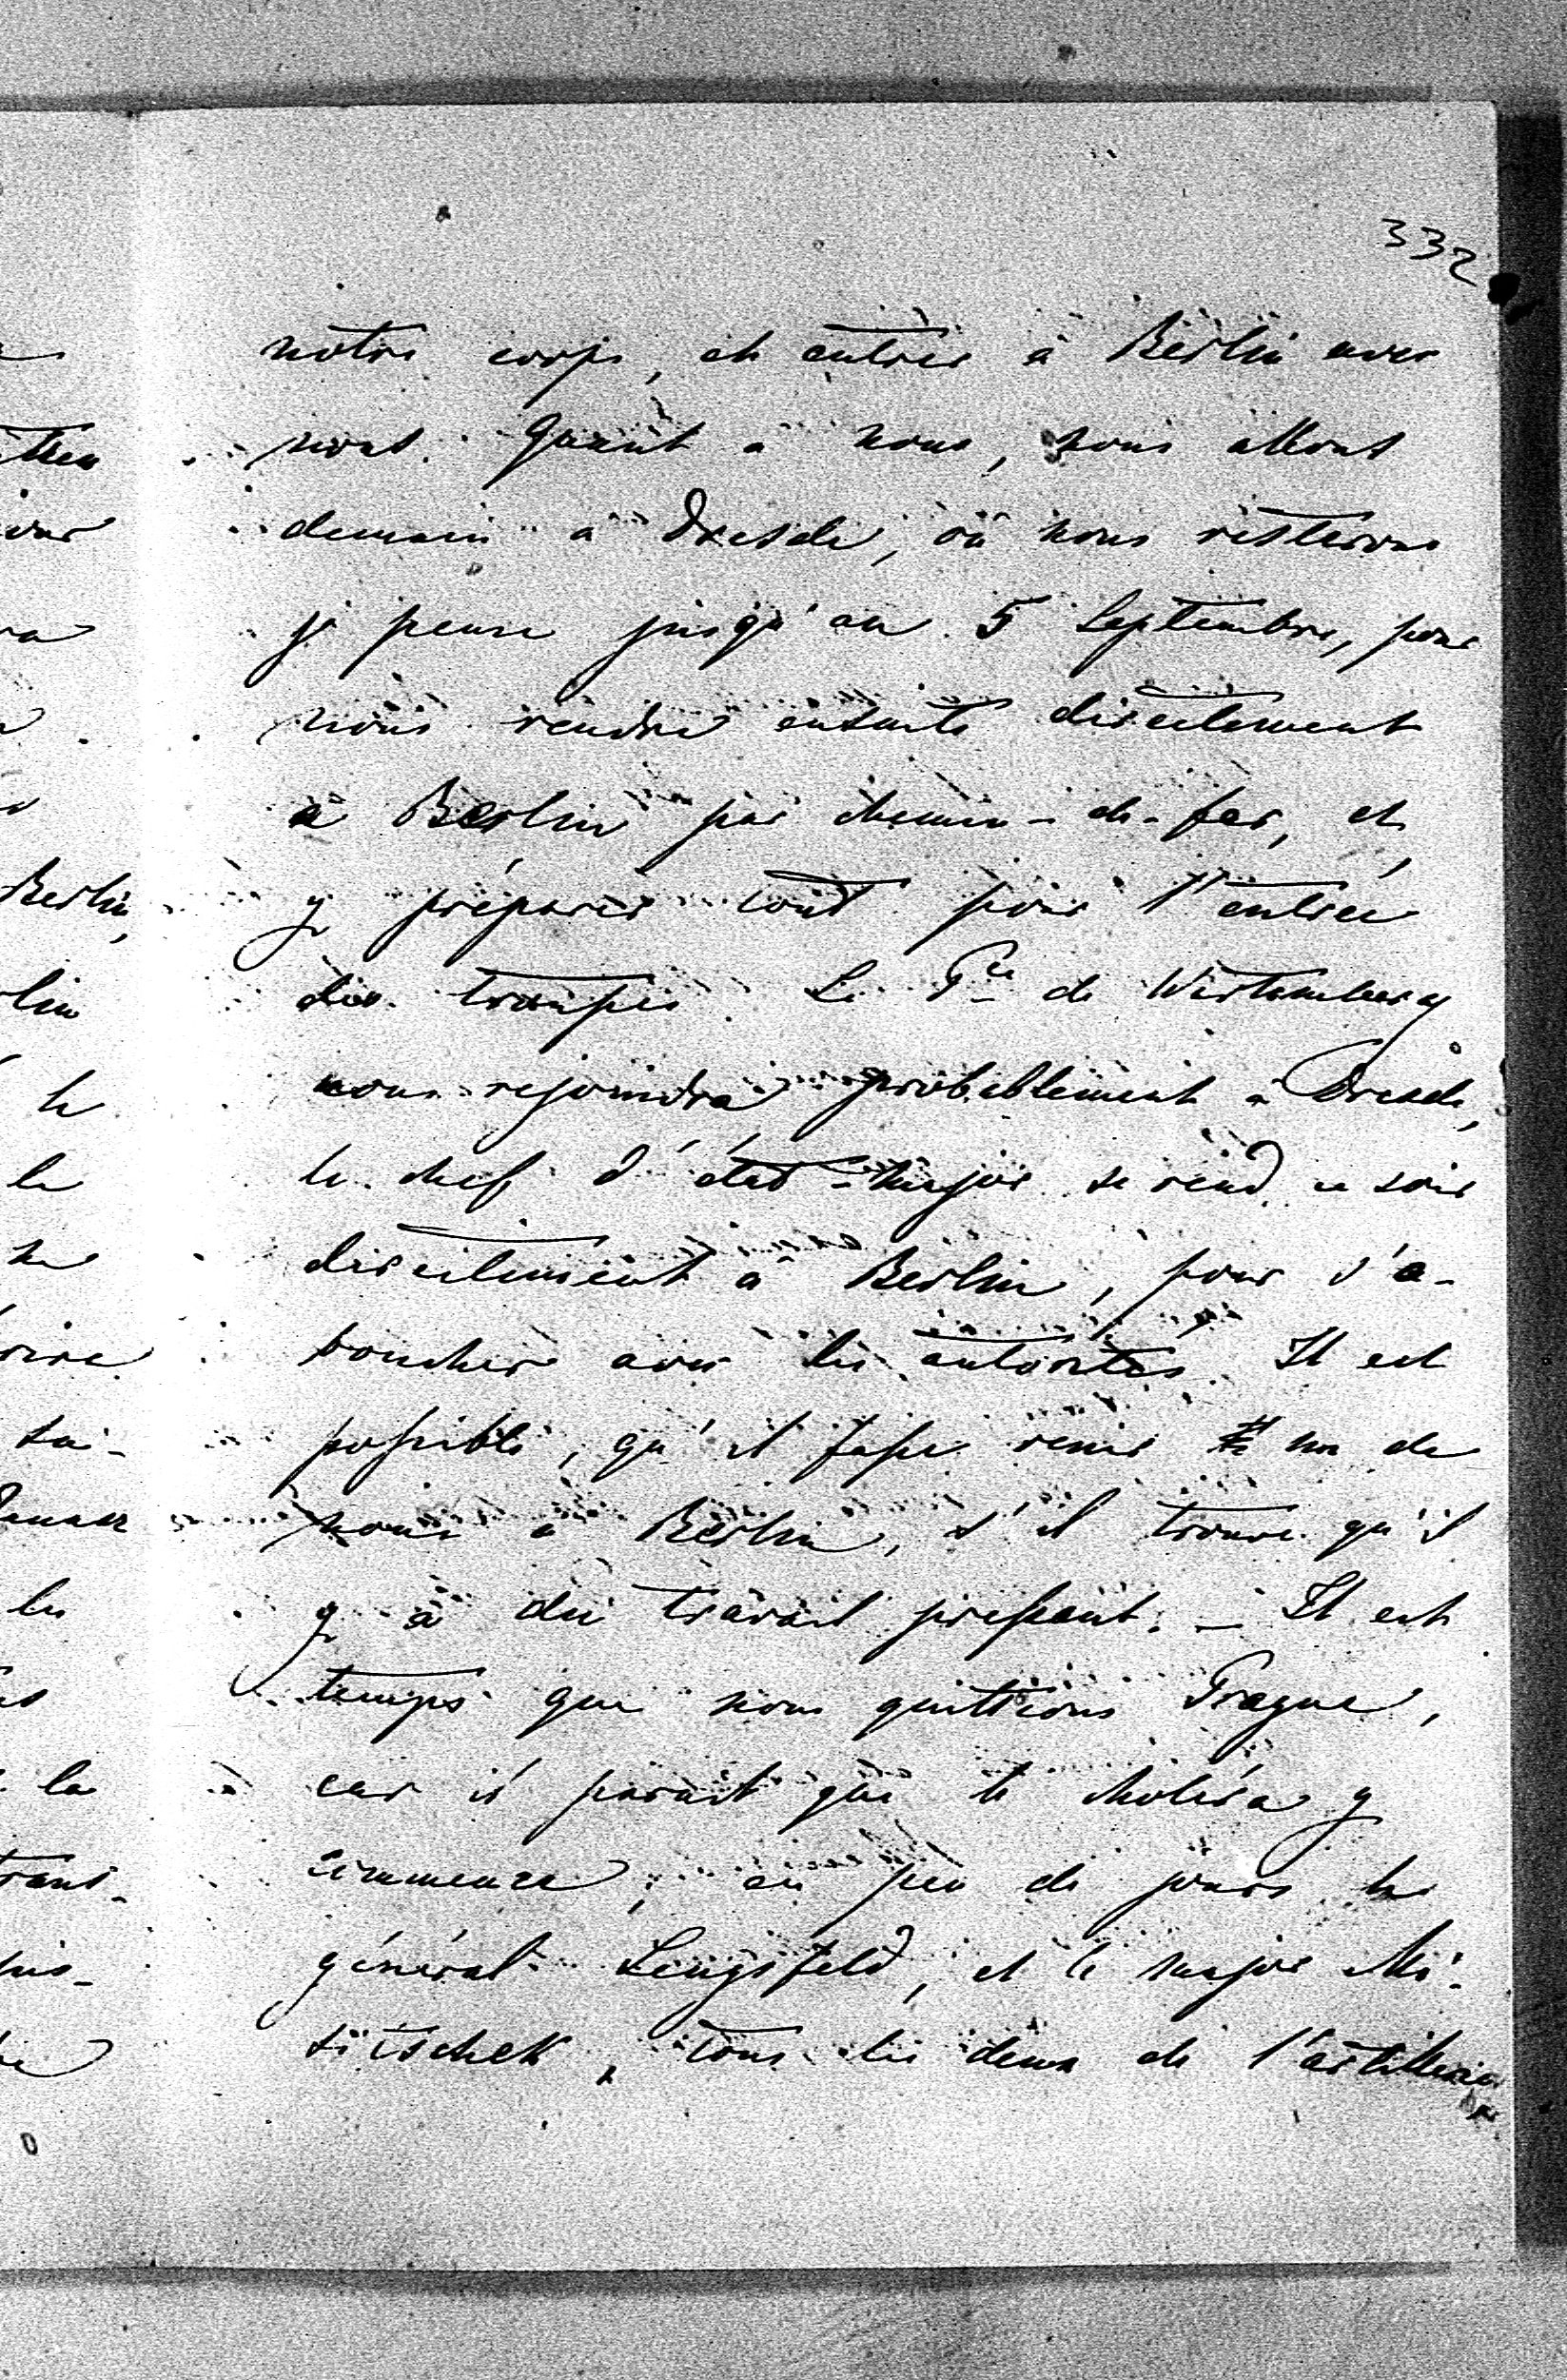 332
notre corps, et entrer à Berlin avec
nous. Quant à nous, nous allons
demain à Dresde, où nous resterons
je pense jusqu'au 5 Septembre, pour
nous rendre ensuite directement
à Berlin par chemin-de-fer, et
y préparer tout pour l'entrée
des troupes. Le Pce de Wirtemberg
nous rejoindra probablement à Dresde,
le chef d'état-major se rend ce soir
directement à Berlin, pour s'a-
boucher avec les autorités. Il est
possible, qu'il fasse venir un de
nous à Berlin, s'il trouve qu'il
y a du travail pressant. — Il est
temps que nous quittions Prague,
car il parait que le choléra y
commence; en peu de jours le
général Lengsfeld, et le major Mi-
sitschek, tous les deux de l'artillerie